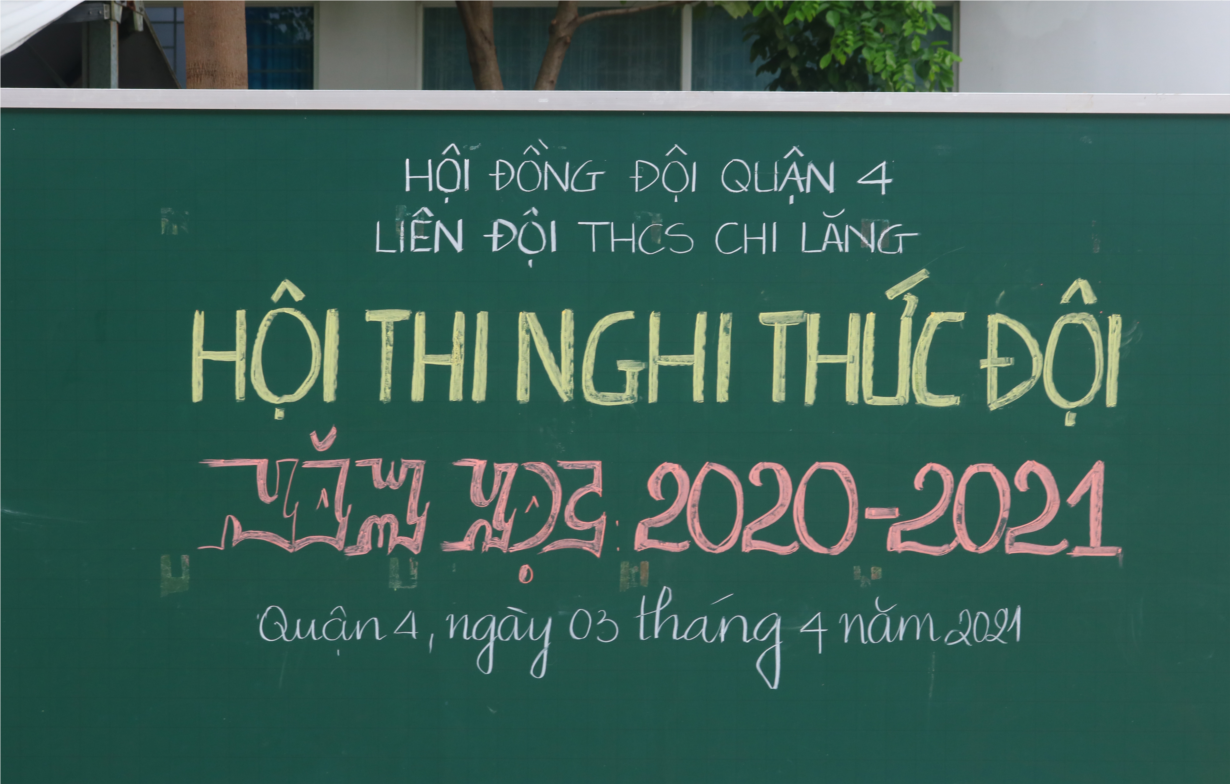 HỘI ĐỒNG ĐỘI QUẬN 4
LIÊN ĐỘI THCS CHI LĂNG
HỘI THI NGHI THỨC ĐỘI
NĂM HỌC: 2020-2021
Quận 4, ngày 03 tháng 4 năm 2021